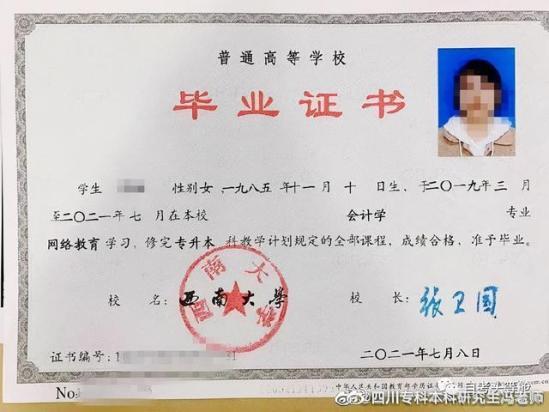 普通高等学校
毕业证书
学生 性别女,一九八五年十一月十日生、于二〇一九年三月
至二〇二一年七月在本校 会计学 专业
网络教育学习,修完专升本科教学计划规定的全部课程,成绩合格,准予毕业。
校 名:西南大学 校 长:张卫国
证书编号:
二〇二一年七月八日
中华人民共和国教育部学历证书
No
自考头等舱
@四川专科本科研究生冯老师